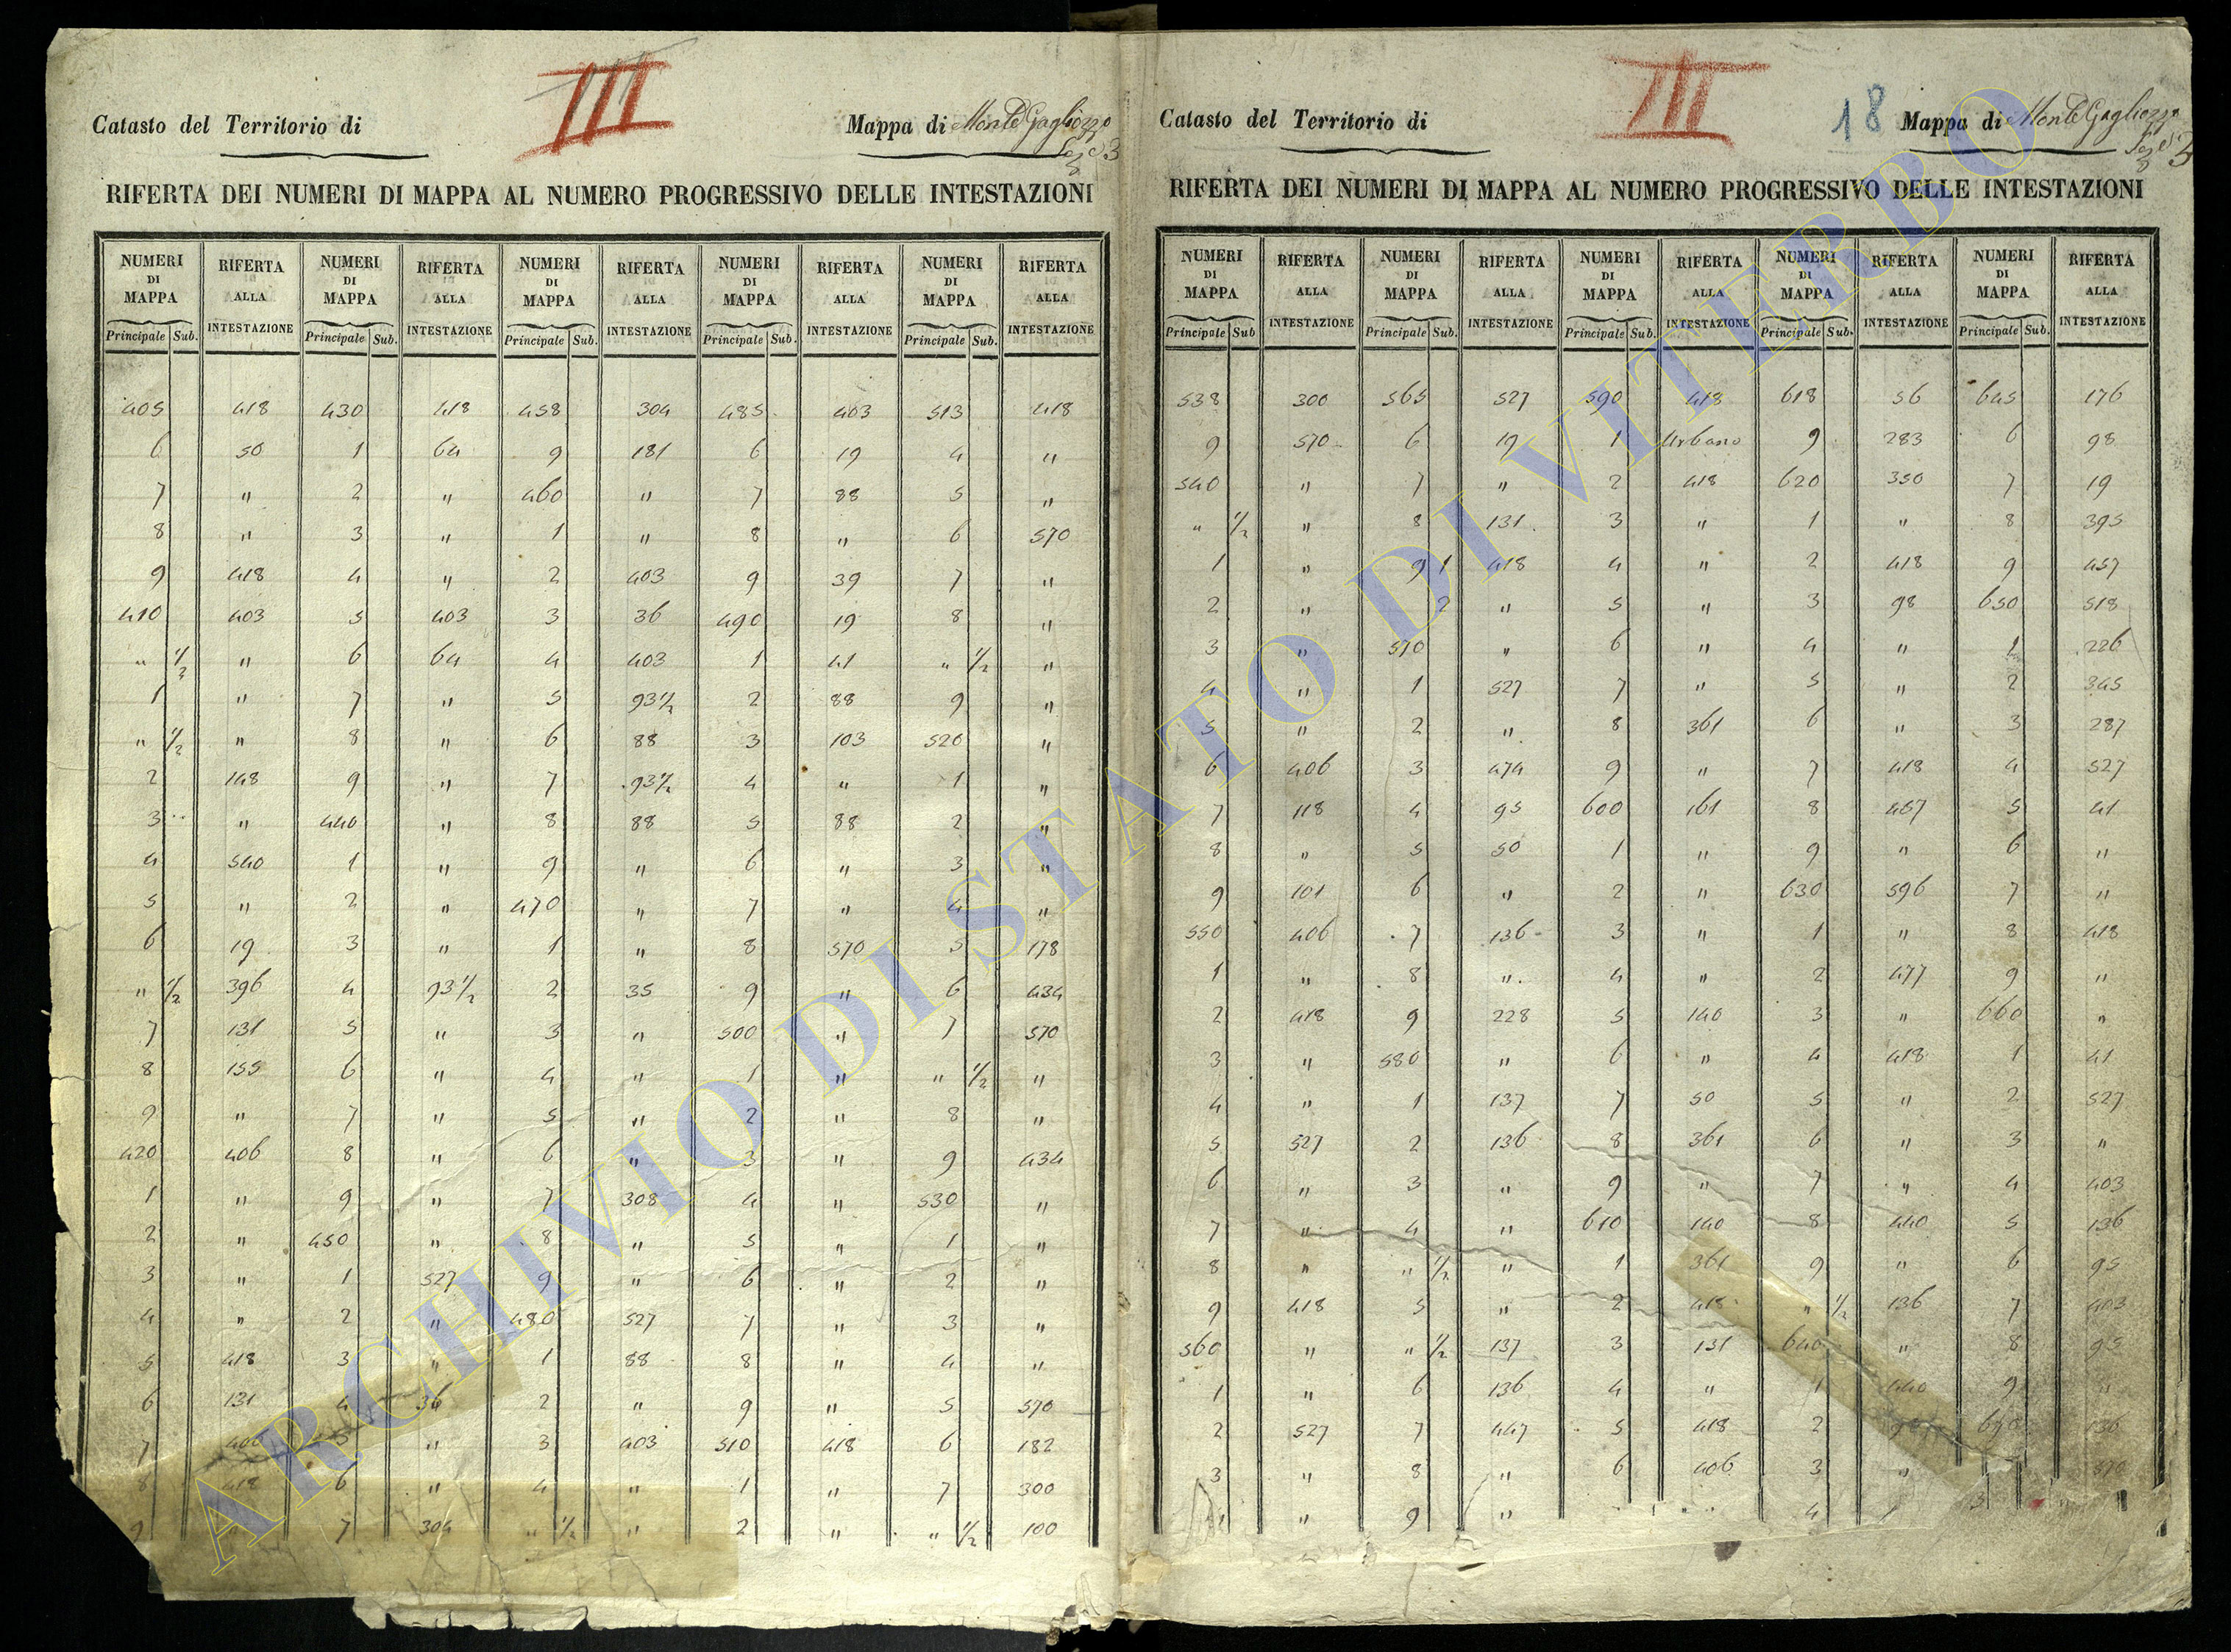 III
Catasto del Territorio di
Mappa di Monte Gagliozzo
Sez.e 3
RIFERTA DEI NUMERI DI MAPPA AL NUMERO PROGRESSIVO DELLE INTESTAZIONI
NUMERI DI MAPPA RIFERTA ALLA INTESTAZIONE NUMERI DI MAPPA RIFERTA ALLA INTESTAZIONE NUMERI DI MAPPA RIFERTA ALLA INTESTAZIONE NUMERI DI MAPPA RIFERTA ALLA INTESTAZIONE NUMERI DI MAPPA RIFERTA ALLA INTESTAZIONE
Principale Sub. Principale Sub. Principale Sub. Principale Sub. Principale Sub.
405 418 430 418 458 304 485 403 513 418
6 50 1 64 9 181 6 19 4 "
7 " 2 " 460 " 7 88 5 "
8 " 3 " 1 " 8 " 6 570
9 418 4 " 2 403 9 39 7 "
410 403 5 403 3 36 490 19 8 "
" 1/2 " 6 64 4 403 1 41 " 1/2 "
1 " 7 " 5 93 1/2 2 88 9 "
" 1/2 " 8 " 6 88 3 103 520 "
2 148 9 " 7 93 1/2 4 " 1 "
3 " 440 " 8 88 5 88 2 "
4 540 1 " 9 " 6 " 3 "
5 " 2 " 470 " 7 " 4 "
6 19 3 " 1 " 8 570 5 178
" 1/2 396 4 93 1/2 2 35 9 " 6 434
7 131 5 " 3 " 500 " 7 570
8 155 6 " 4 " 1 " " 1/2 "
9 " 7 " 5 " 2 " 8 "
420 406 8 " 6 " 3 " 9 434
1 " 9 " 7 308 4 " 530 "
2 " 450 " 8 " 5 " 1 "
3 " 1 527 9 " 6 " 2 "
4 " 2 " 480 527 7 " 3 "
5 418 3 " 1 88 8 " 4 "
6 131 4 36 2 " 9 " 5 570
7 406 5 " 3 403 510 418 6 182
8 418 6 " 4 " 1 " 7 300
9 7 304 " 1/2 " 2 " " 1/2 100
III
18
Catasto del Territorio di
Mappa di Monte Gagliozzo
Sez.e 3
RIFERTA DEI NUMERI DI MAPPA AL NUMERO PROGRESSIVO DELLE INTESTAZIONI
NUMERI DI MAPPA RIFERTA ALLA INTESTAZIONE NUMERI DI MAPPA RIFERTA ALLA INTESTAZIONE NUMERI DI MAPPA RIFERTA ALLA INTESTAZIONE NUMERI DI MAPPA RIFERTA ALLA INTESTAZIONE NUMERI DI MAPPA RIFERTA ALLA INTESTAZIONE
Principale Sub Principale Sub. Principale Sub. Principale Sub. Principale Sub.
538 300 565 527 590 418 618 56 645 176
9 570 6 19 1 Urbano 9 283 6 98
540 " 7 " 2 418 620 350 7 19
" 1/2 " 8 131 3 " 1 " 8 395
1 " 9 1 418 4 " 2 418 9 457
2 " 2 " 5 " 3 98 650 518
3 " 570 " 6 " 4 " 1 226
4 " 1 527 7 " 5 " 2 345
5 " 2 " 8 361 6 " 3 287
6 406 3 474 9 " 7 418 4 527
7 118 4 95 600 161 8 467 5 41
8 " 5 50 1 " 9 " 6 "
9 101 6 " 2 " 630 596 7 "
550 406 7 136 3 " 1 " 8 418
1 " 8 " 4 " 2 477 9 "
2 418 9 228 5 140 3 " 660 "
3 " 580 " 6 " 4 418 1 41
4 " 1 137 7 50 5 " 2 527
5 527 2 136 8 361 6 " 3 "
6 " 3 " 9 " 7 " 4 403
7 " 4 " 610 140 8 440 5 136
8 " " 1/2 " 1 361 9 " 6 95
9 418 5 " 2 418 " 1/2 136 7 403
560 " " 1/2 137 3 131 640 " 8 95
1 " 6 136 4 " 1 440 9 "
2 527 7 447 5 418 2 670 136
3 " 8 " 6 406 3 " 570
" 9 " 4 3 "
ARCHIVIO DI STATO DI VITERBO